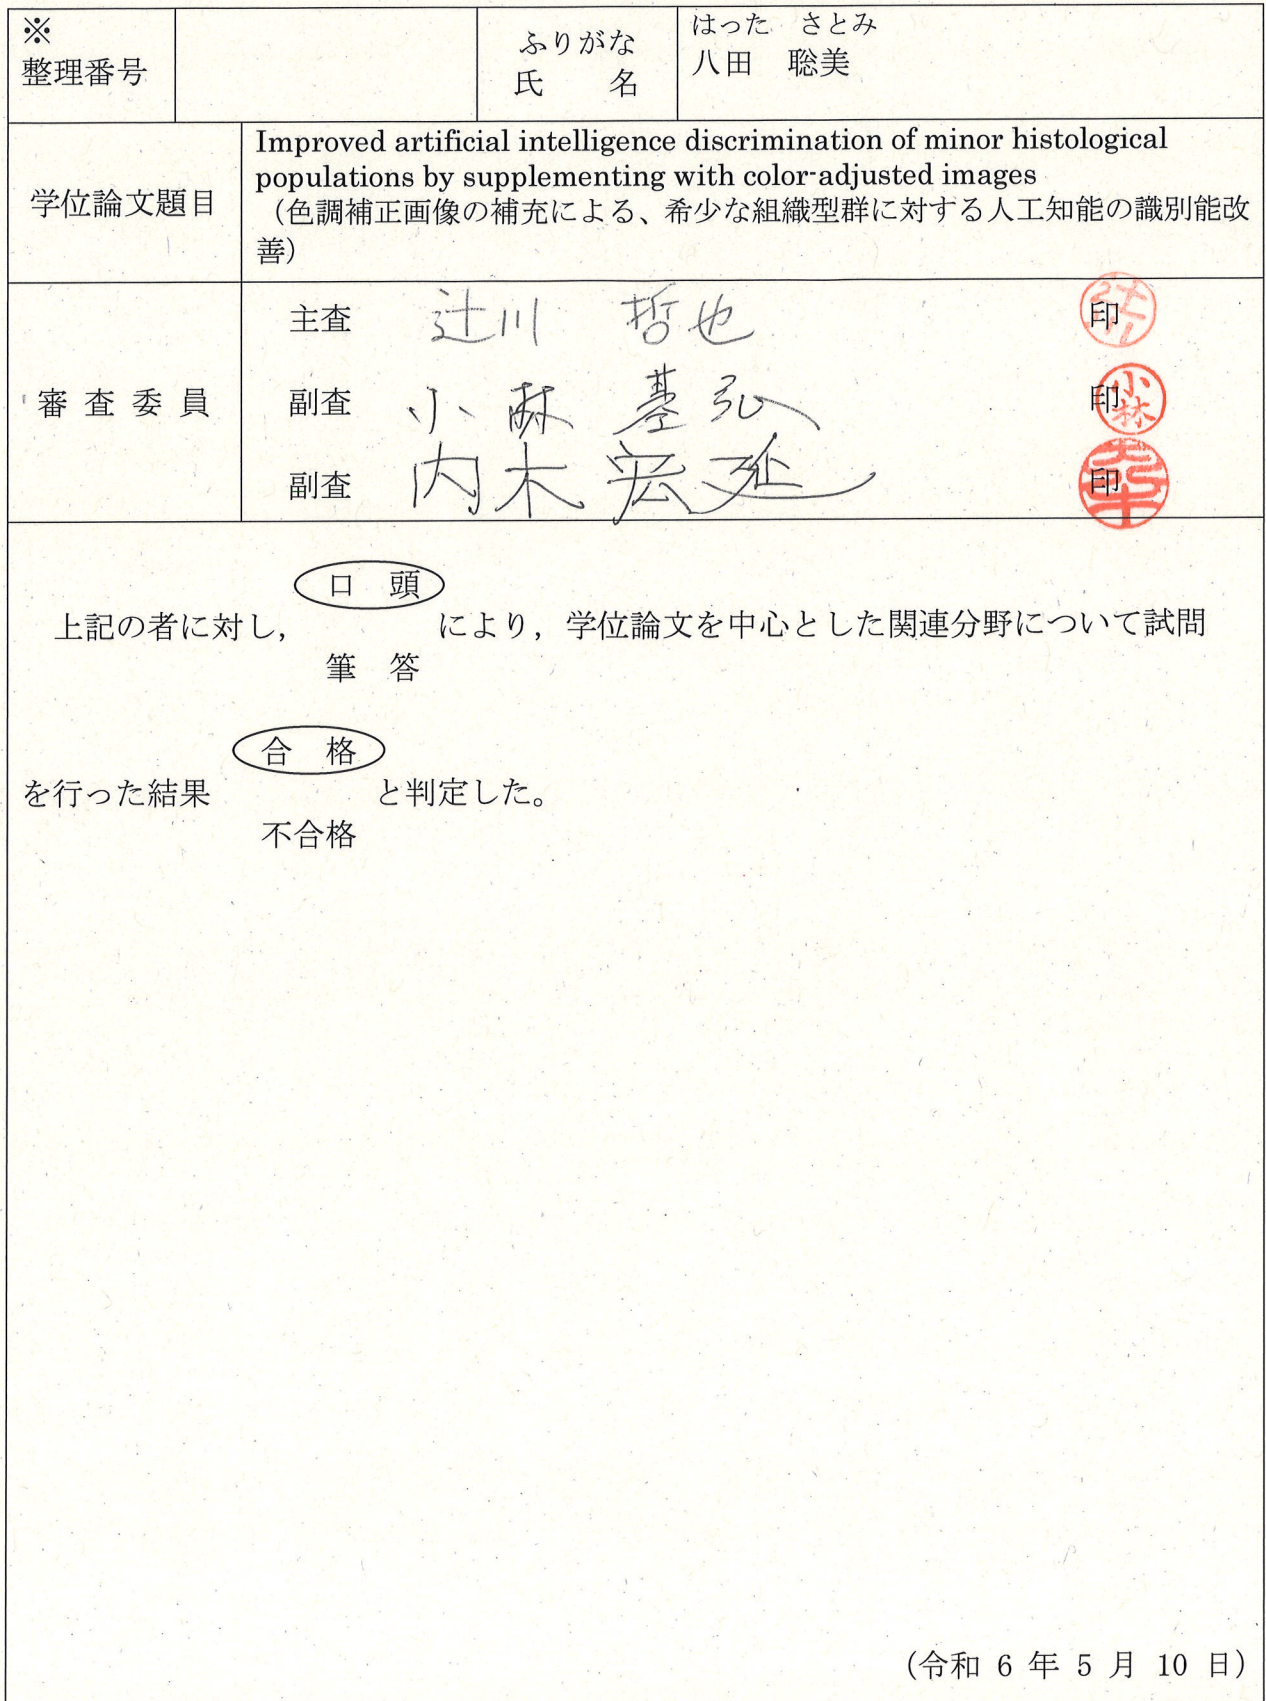 ※
整理番号
ふりがな
氏　　名
はった　さとみ
八田　聡美
学位論文題目
Improved artificial intelligence discrimination of minor histological
populations by supplementing with color-adjusted images
（色調補正画像の補充による、希少な組織型群に対する人工知能の識別能改
善）
審 査 委 員
主査　辻川　哲也　印　辻川
副査　小林　基弘　印　小林
副査　内木　宏延　印
口　頭
上記の者に対し，　により，学位論文を中心とした関連分野について試問
筆　答
合　格
を行った結果　と判定した。
不合格
（令和 6 年 5 月 10 日）